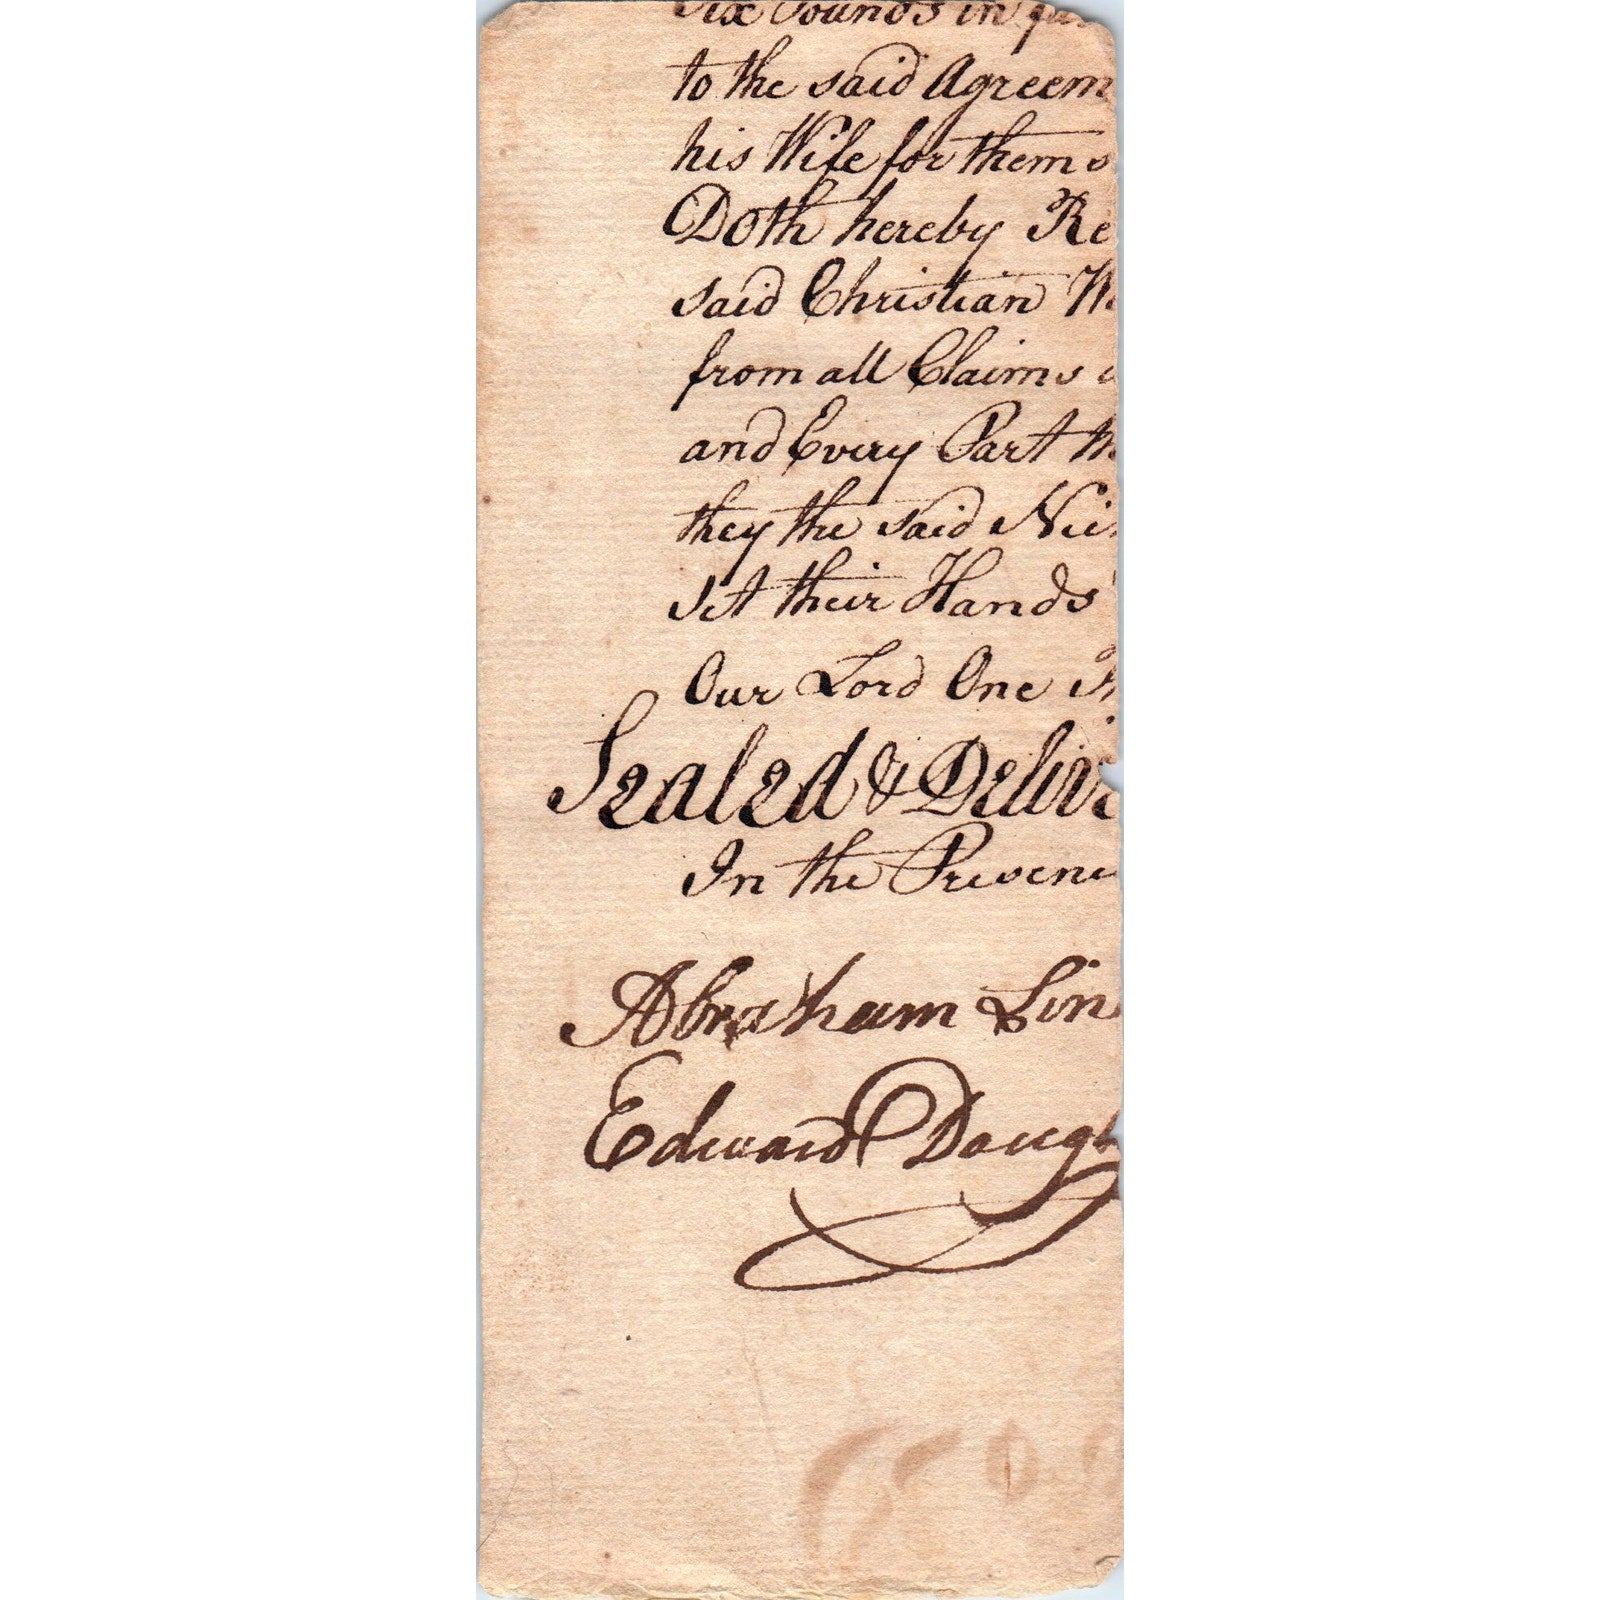 Six Pounds in
to the said Agreem
his Wife for them s
Doth hereby Re
said Christian W
from all Claims
and Every Part th
they the said Nic
set their Hands
Our Lord One Th
Sealed & Delive
In the Presenc
Abraham Lin
Edward Dough